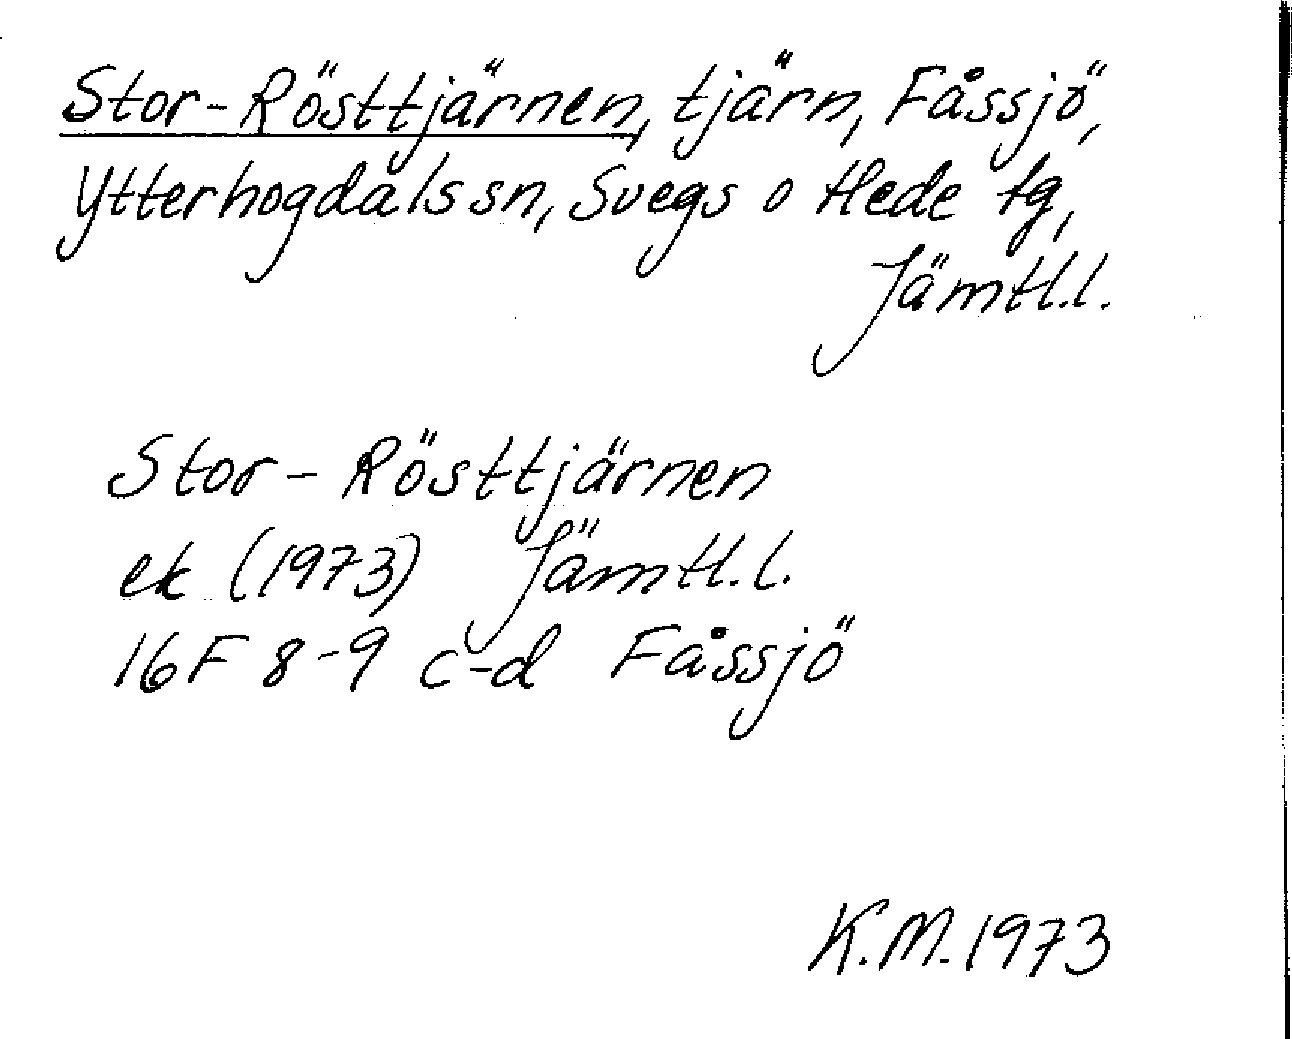 Stor-Rösttjärnen, tjärn, Fåssjö,
Ytterhogdals sn, Svegs o Hede tg,
Jämtl.l.
Stor-Rösttjärnen
ek (1973) Jämtl.l.
16F 8-9 c-d Fåssjö
K.M. 1973